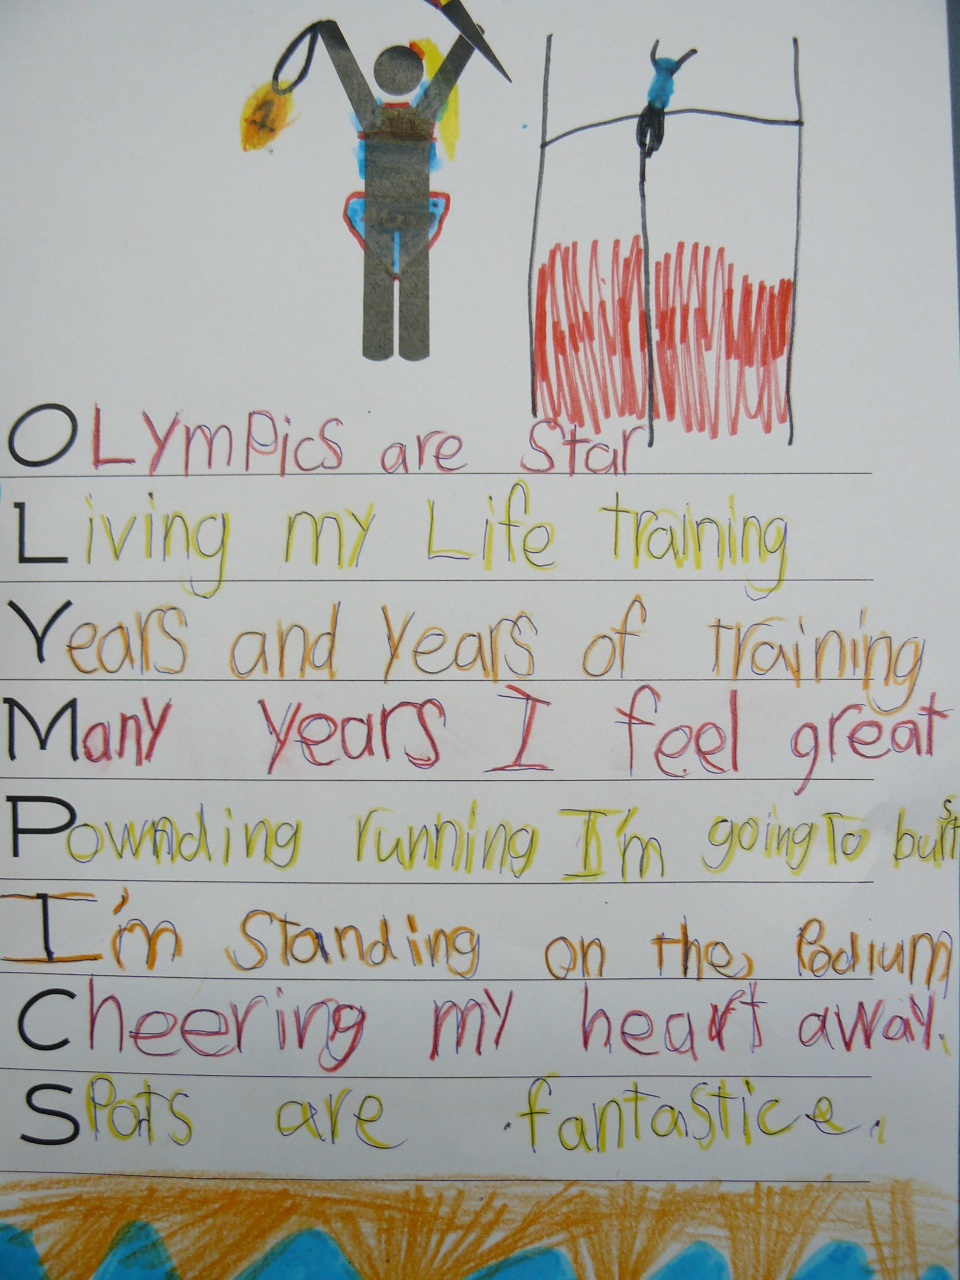 1
OLympics are Star
Living my Life training
Years and years of training
Many years I feel great
Pownding running I'm going To burst
I'm Standing on the, Podium
Cheering my heart away.
SPots are fantastice.